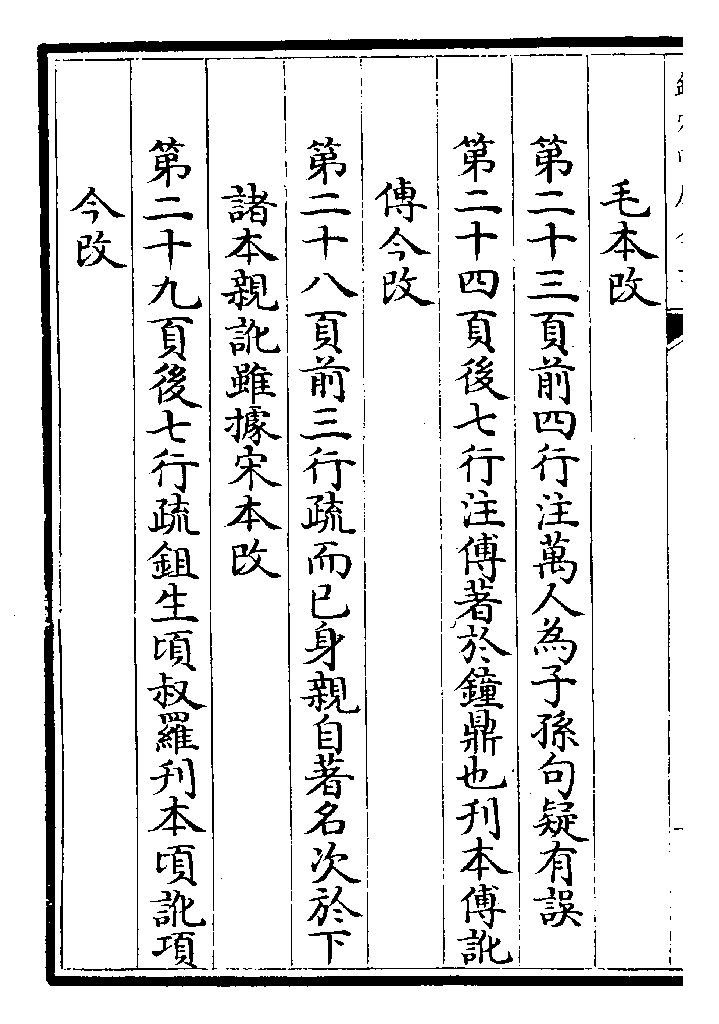 毛本改
第二十三頁前四行注萬人為子孫句疑有誤
第二十四頁後七行注傅著於鐘鼎也刊本傅訛
傳今改
第二十八頁前三行疏而已身親自著名次於下
諸本親訛雖據宋本改
第二十九頁後七行疏鉏生頃叔羅刊本頃訛項
今改